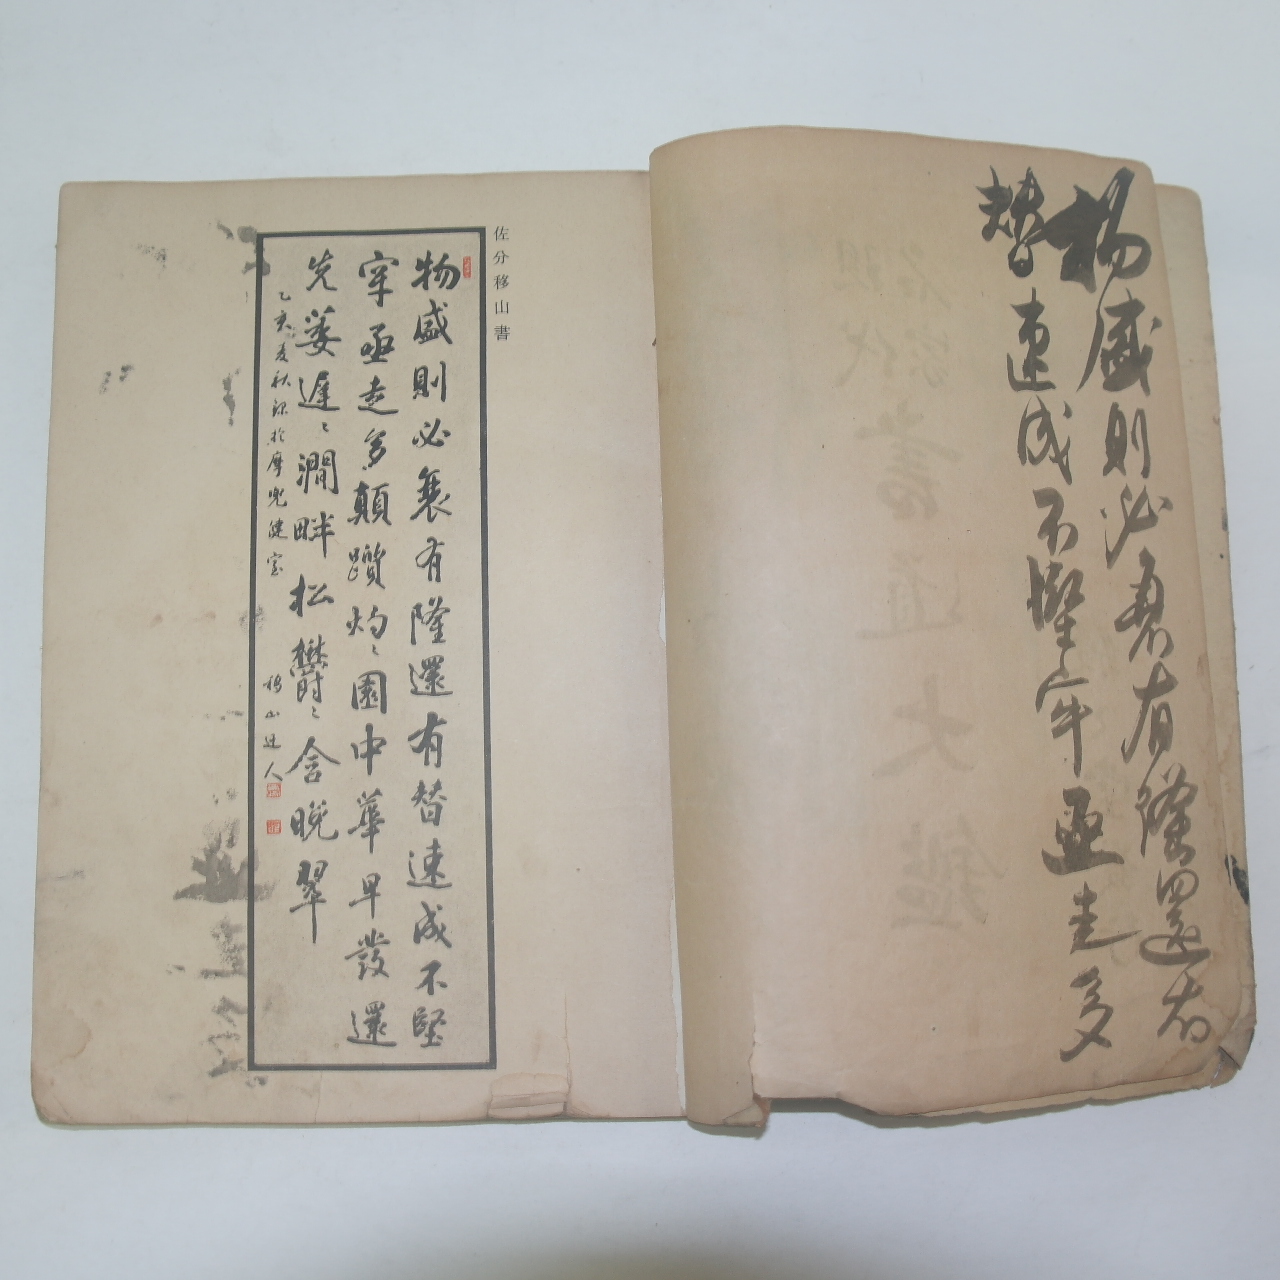 物盛則必衰有隆還有
替速成不堅牢亟走多
佐分移山書
物盛則必衰有隆還有替速成不堅
牢亟走多顛躓灼〻園中華早發還
先萎遲〻澗畔松鬱〻含晚翠
乙亥麦秋録於摩兜健室 移山迂人